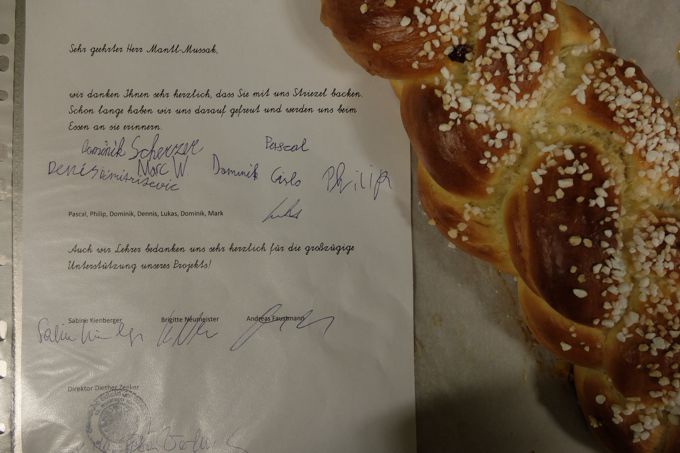 Sehr geehrter Herr Mantl-Mussak,
wir danken Ihnen sehr herzlich, dass Sie mit uns Striezel backen.
Schon lange haben wir uns darauf gefreut und werden uns beim
Essen an sie erinnern.
Dominik Scherzer Pascal
Dennis Marc W Dominik Carlo Philip
Lukas
Pascal, Philip, Dominik, Dennis, Lukas, Dominik, Mark
Auch wir Lehrer bedanken uns sehr herzlich für die großzügige
Unterstützung unseres Projekts!
Sabine Kienberger Brigitte Neumeister Andreas Faustmann
Direktor Diether Zenker